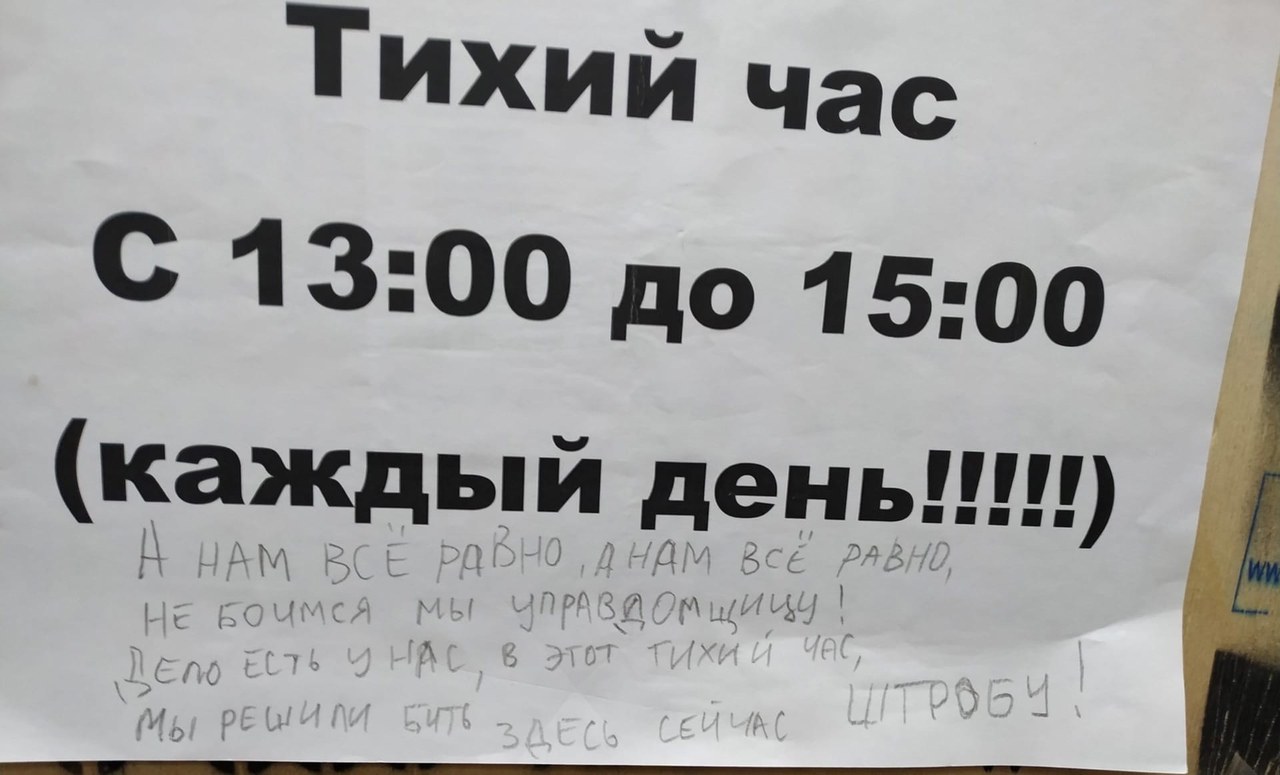 Тихий час
С 13:00 до 15:00
(каждый день!!!!!)
А НАМ ВСЁ РАВНО, А НАМ ВСЁ РАВНО,
НЕ БОИМСЯ МЫ УПРАВДОМЩИЦУ!
ДЕЛО ЕСТЬ У НАС, В ЭТОТ ТИХИЙ ЧАС,
МЫ РЕШИЛИ БИТЬ ЗДЕСЬ СЕЙЧАС ШТРОБУ!